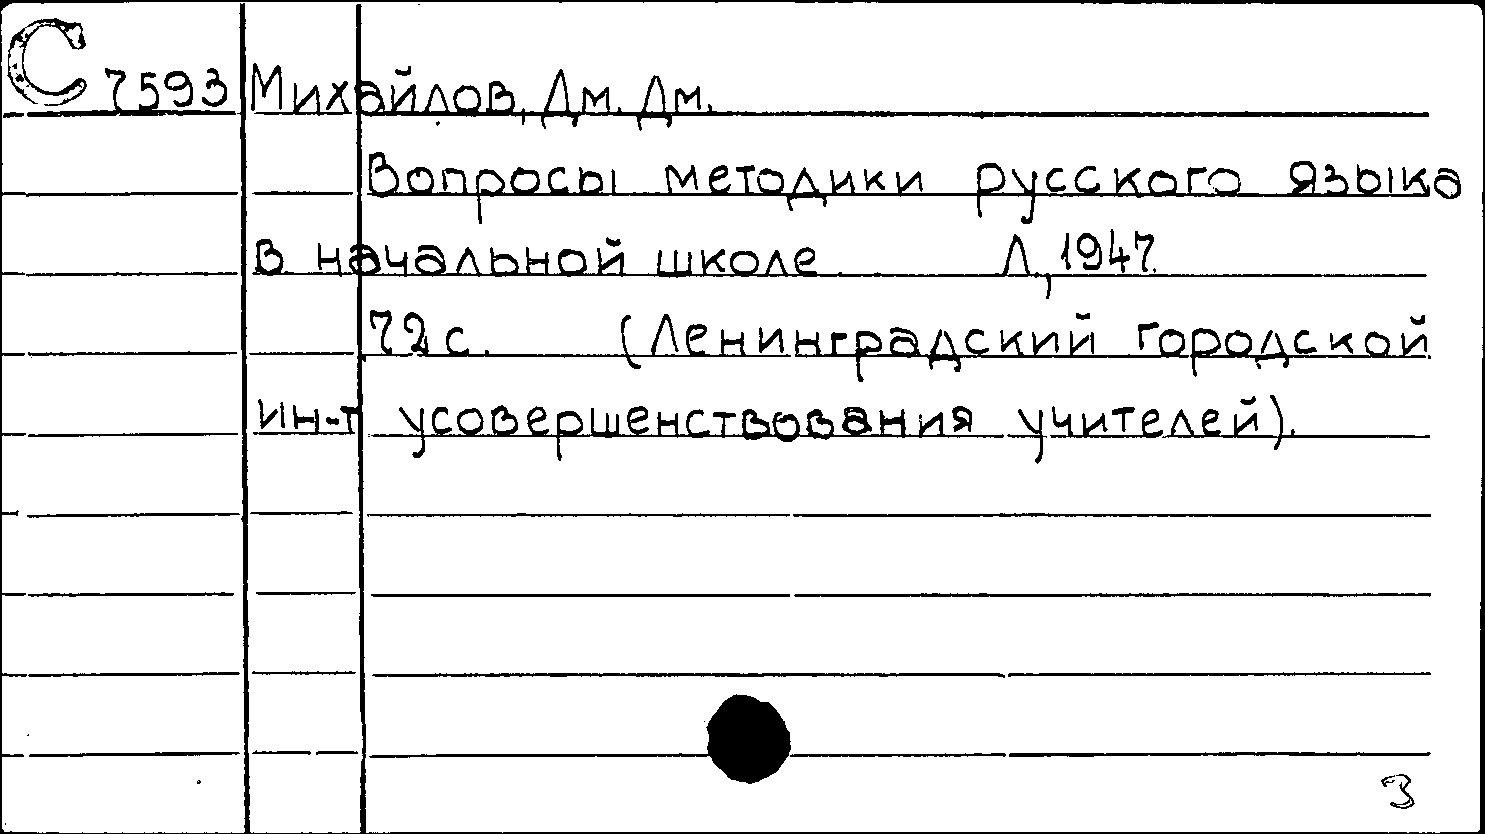 С 7593 Михайлов, Дм. Дм.
Вопросы методики русского языка
в начальной школе Л., 1947.
72 с. (Ленинградский городской
ин-т усовершенствования учителей).
3